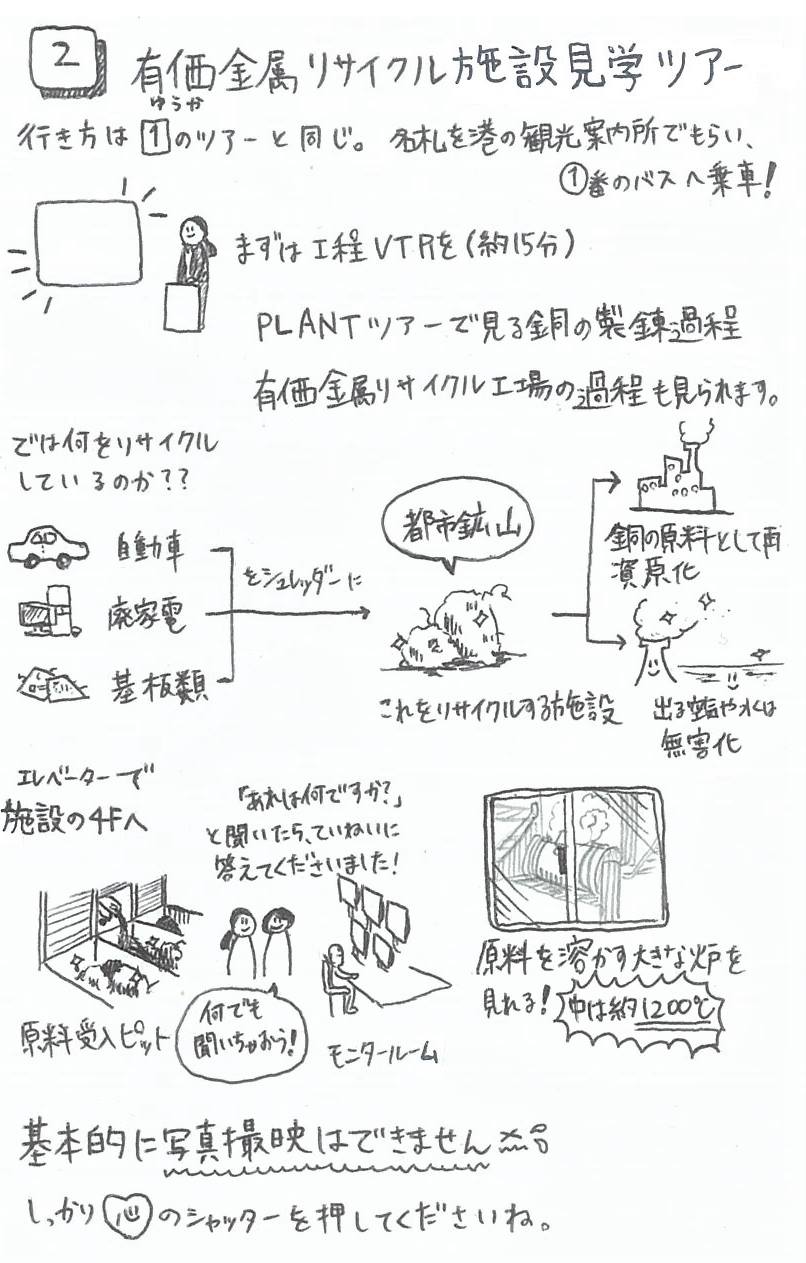 2 有価金属リサイクル施設見学ツアー
ゆうか
行き方は1のツアーと同じ。名札を港の観光案内所でもらい、
①番のバスへ乗車!
まずは工程VTRを(約15分)
PLANTツアーで見る銅の製錬過程
有価金属リサイクル工場の過程も見られます。
では何をリサイクル
しているのか??
自動車
廃家電
基板類
をシュレッダーに
都市鉱山
これをリサイクルする施設
銅の原料として再
資源化
出る空気や水は
無害化
エレベーターで
施設の4Fへ
「あれは何ですか?」
と聞いたら、ていねいに
答えてくださいました!
原料受入ピット
何でも
聞いちゃおう!
モニタールーム
原料を溶かす大きな炉を
見れる!
中は約1200℃
基本的に写真撮映はできません
しっかり心のシャッターを押してくださいね。